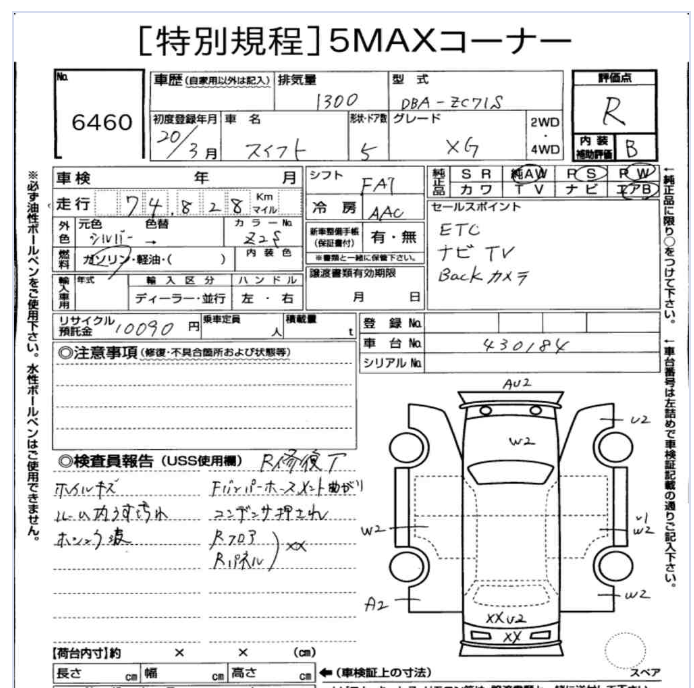 [特別規程]5MAXコーナー
No. 6460
車歴(自家用以外は記入) 排気量 1300 型式 DBA-ZC71S
評価点 R
内装補助評価 B
初度登録年月 20/3月 車名 スイフト 形状・ドア数 5 グレード XG 2WD・4WD
※必ず油性ボールペンをご使用下さい。水性ボールペンはご使用できません。
車検 年 月
走行 74,828 Km マイル
外色 元色 シルバー 色替 → カラーNo. Z2S
燃料 ガソリン・軽油・( ) 内装色
輸入車用 年式 輸入区分 ディーラー・並行 ハンドル 左・右
リサイクル預託金 10090円 乗車定員 人 積載量 t
シフト FAT
冷房 AAC
新車整備手帳(保証書付) 有・無
※書類と一緒に保管下さい。
譲渡書類有効期限
月 日
純正品 SR 純AW PS PW
カワ TV ナビ エアB
セールスポイント
ETC
ナビ TV
Back カメラ
登録No.
車台No. 430184
シリアルNo.
←純正品に限り○をつけて下さい。
←車台番号は左詰めで車検証記載の通りご記入下さい。
◎注意事項(修復・不具合箇所および状態等)
◎検査員報告(USS使用欄) R修復了
ホイルキズ Fバンパーホースメント曲がり
ルーム内うす汚れ コンデンサ押され
ボンネット波 Rフロア
Rパネル XX
AU2
W2
U2
W2
U1
W2
A2
W2
XXU2
XX
【荷台内寸】約 × × (cm)
長さ cm 幅 cm 高さ cm ←(車検証上の寸法)
スペア